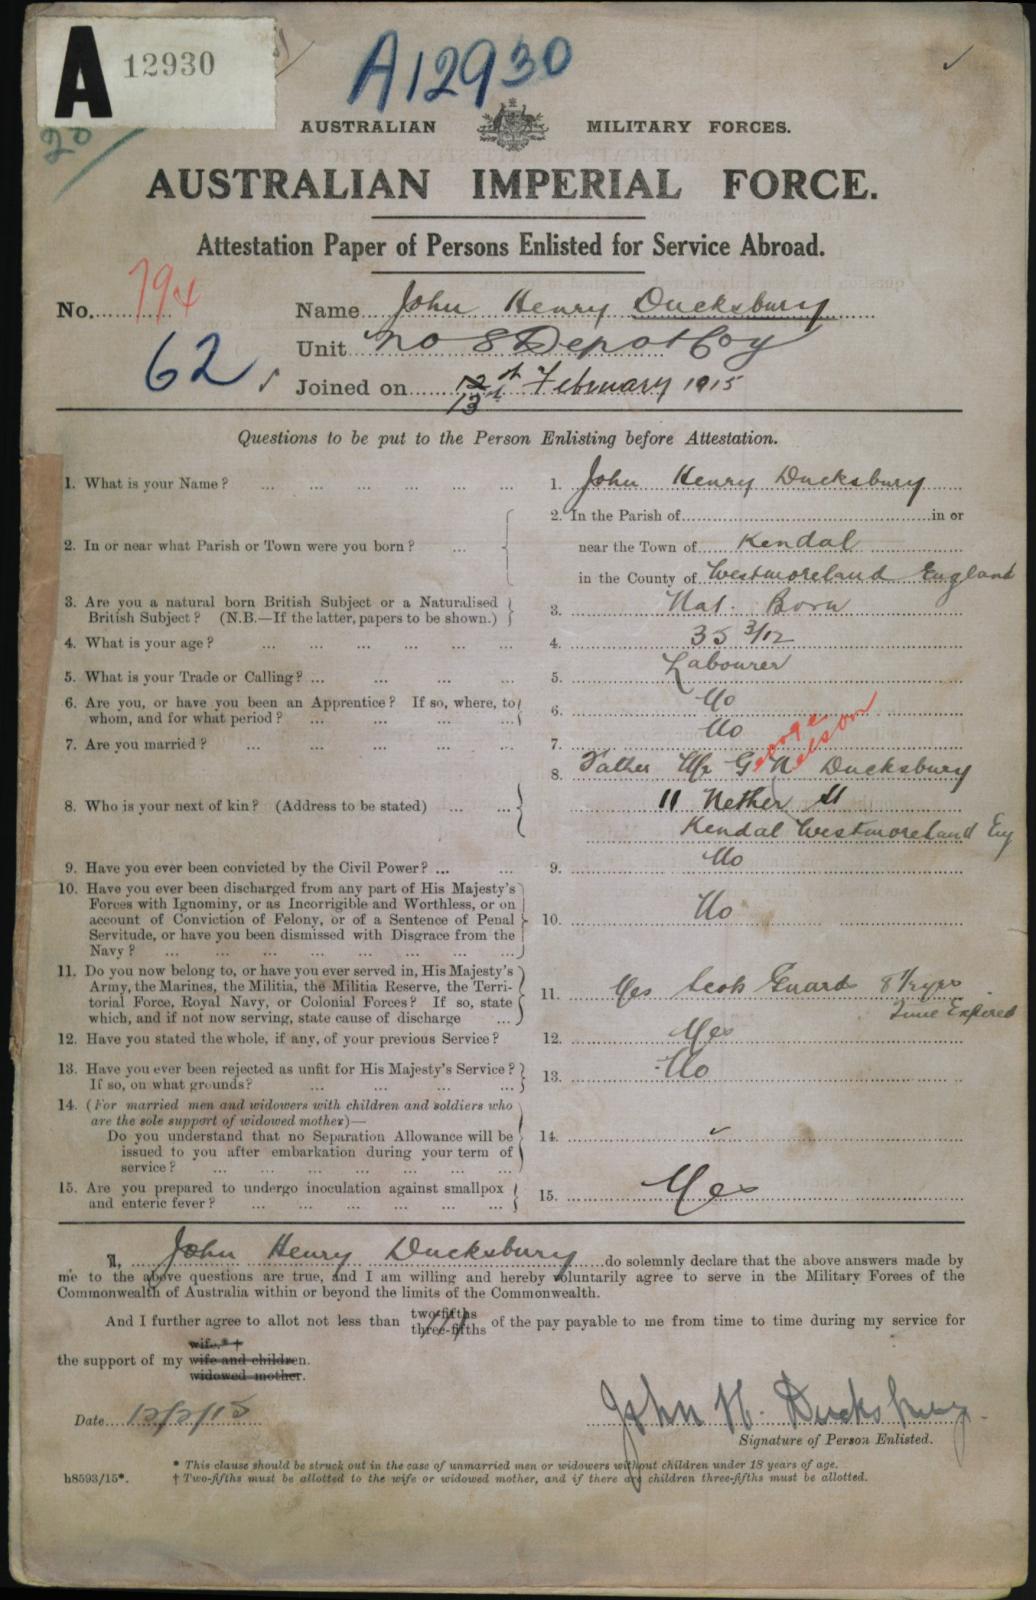 A 12930
A12930
20
AUSTRALIAN MILITARY FORCES.
AUSTRALIAN IMPERIAL FORCE.
Attestation Paper of Persons Enlisted for Service Abroad.
No. 794 Name John Henry Ducksbury
62 Unit No 8 Depot Coy
Joined on 12th 13th February 1915
Questions to be put to the Person Enlisting before Attestation.
1. What is your Name? ... ... ... ... ... ... 1. John Henry Ducksbury
2. In the Parish of in or
2. In or near what Parish or Town were you born? ... near the Town of Kendal
in the County of Westmoreland England
3. Are you a natural born British Subject or a Naturalised
British Subject? (N.B.—If the latter, papers to be shown.) 3. Nat. Born
4. What is your age? ... ... ... ... ... 4. 35 3/12
5. What is your Trade or Calling? ... ... ... ... 5. Labourer
6. Are you, or have you been an Apprentice? If so, where, to
whom, and for what period? ... ... ... ... 6. No
7. Are you married? ... ... ... ... ... 7. No
George Nelson
8. Father Mr G N Ducksbury
8. Who is your next of kin? (Address to be stated) ... ... 11 Nether St
Kendal Westmoreland Eng
9. Have you ever been convicted by the Civil Power? ... ... 9. No
10. Have you ever been discharged from any part of His Majesty's
Forces with Ignominy, or as Incorrigible and Worthless, or on
account of Conviction of Felony, or of a Sentence of Penal 10. No
Servitude, or have you been dismissed with Disgrace from the
Navy? ... ... ... ... ... ... ...
11. Do you now belong to, or have you ever served in, His Majesty's
Army, the Marines, the Militia, the Militia Reserve, the Terri-
torial Force, Royal Navy, or Colonial Forces? If so, state 11. Yes Scots Guards 8 1/2 yrs
which, and if not now serving, state cause of discharge ... Time Expired
12. Have you stated the whole, if any, of your previous Service? 12. Yes
13. Have you ever been rejected as unfit for His Majesty's Service?
If so, on what grounds? ... ... ... ... 13. No
14. (For married men and widowers with children and soldiers who
are the sole support of widowed mother)—
Do you understand that no Separation Allowance will be 14.
issued to you after embarkation during your term of
service? ... ... ... ... ... ...
15. Are you prepared to undergo inoculation against smallpox
and enteric fever? ... ... ... ... ... ... 15. Yes
I, John Henry Ducksbury do solemnly declare that the above answers made by
me to the above questions are true, and I am willing and hereby voluntarily agree to serve in the Military Forces of the
Commonwealth of Australia within or beyond the limits of the Commonwealth.
And I further agree to allot not less than two-fifths three-fifths of the pay payable to me from time to time during my service for
wife.*†
the support of my wife and children.
widowed mother.
Date 12/2/15 John H. Ducksbury
Signature of Person Enlisted.
* This clause should be struck out in the case of unmarried men or widowers without children under 18 years of age.
b8593/15*. † Two-fifths must be allotted to the wife or widowed mother, and if there are children three-fifths must be allotted.